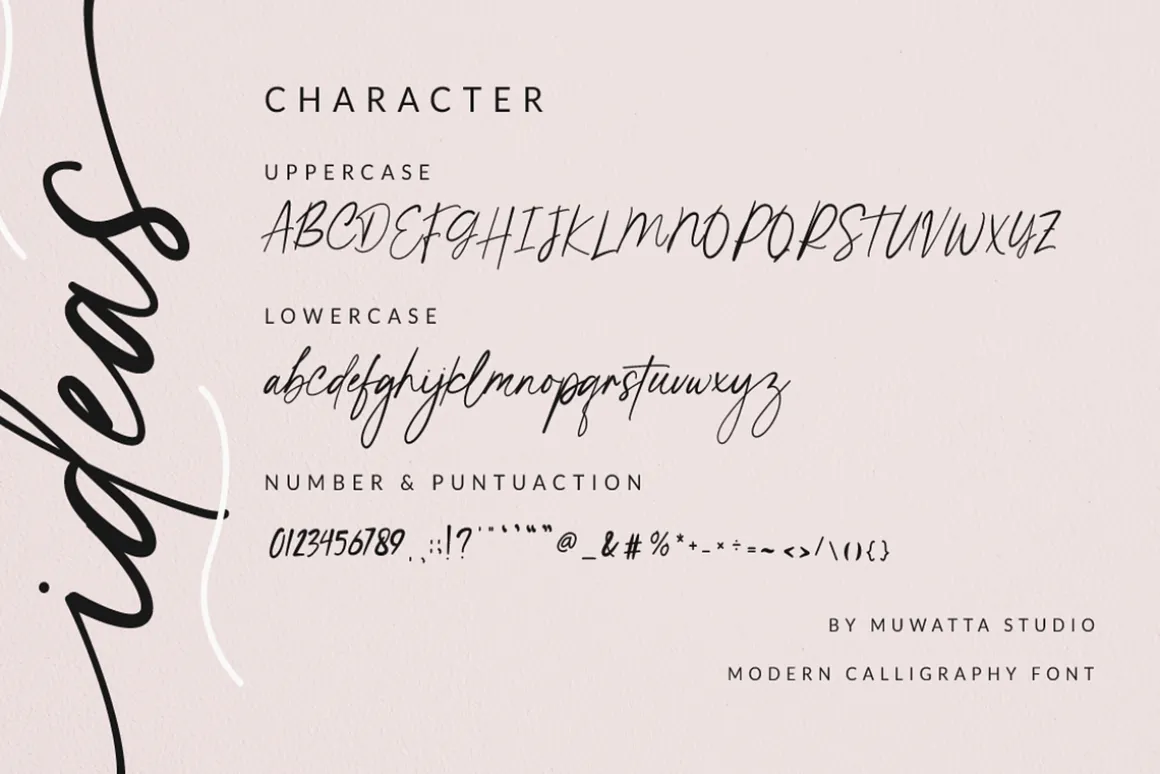 ideas
CHARACTER
UPPERCASE
ABCDEFGHIJKLMNOPQRSTUVWXYZ
LOWERCASE
abcdefghijklmnopqrstuvwxyz
NUMBER & PUNTUACTION
0123456789.,:;!?'"‘’“”@_&#%*+-×÷=~<>/\(){}
BY MUWATTA STUDIO
MODERN CALLIGRAPHY FONT